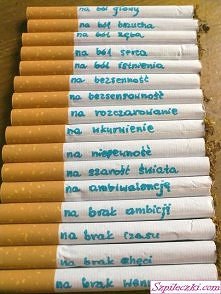 na ból głowy
na ból brzucha
na ból zęba
na ból serca
na ból istnienia
na bezsenność
na bezsensowność
na rozczarowanie
na wkurwienie
na niepewność
na szarość świata
na ambiwalencję
na brak ambicji
na brak czasu
na brak chęci
na brak weny
Szpileczki.com